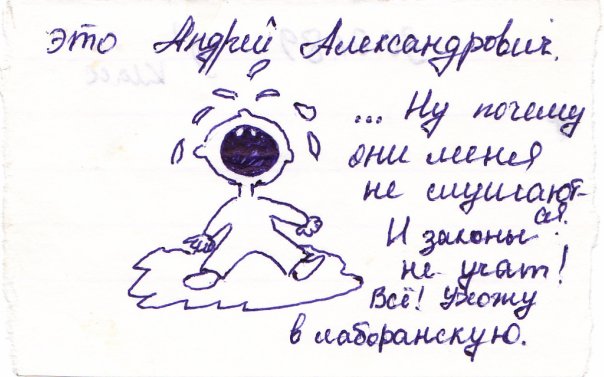 это Андрей Александрович.
... Ну почему
они меня
не слушают-
ся?
И законы
не учат!
Всё! Ухожу
в лаборанскую.